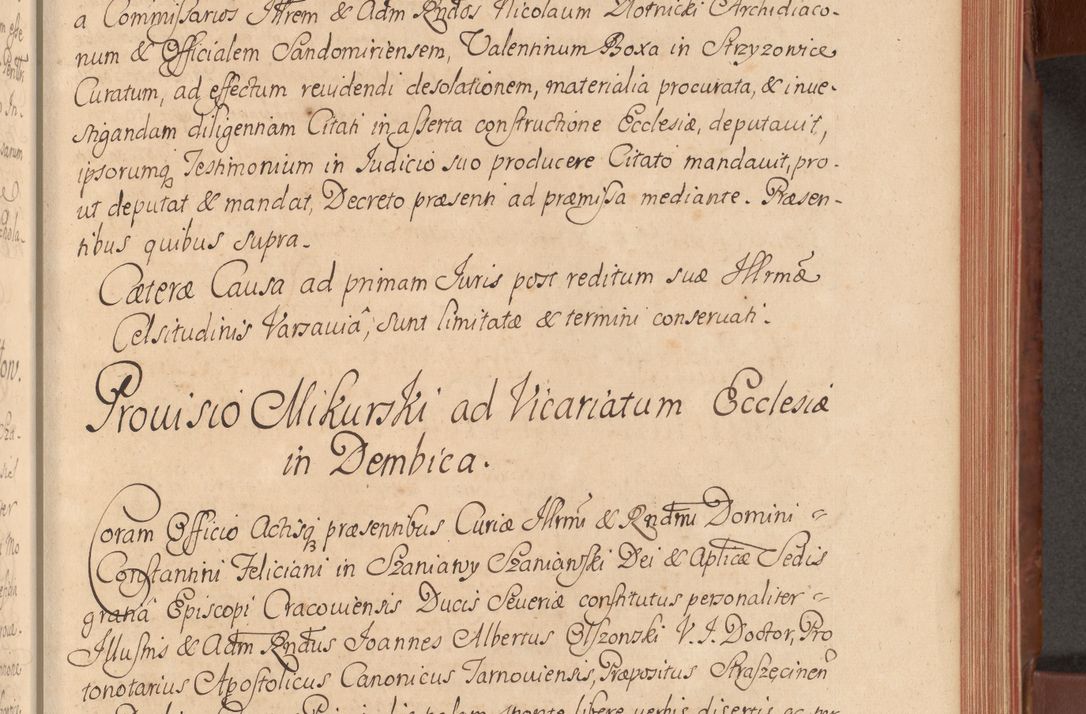 a Commissarios Illrem & Adm Rndos Nicolaum Złotnicki Archidiaco-
num & Officialem Sandomiriensem, Valentinum Boxa in Strzyzowice
Curatum, ad effectum reuidendi desolationem, materialia procurata, & inue-
stigandam diligentiam Citati in asserta constructione Ecclesiæ, deputauit,
ipsorumq Testimonium in Iudicio suo producere Citato mandauit, pro-
ut deputat & mandat, Decreto præsenti ad præmissa mediante. Præsen-
tibus quibus supra.
Cæteræ Causa ad primam Iuris post reditum suæ Illrmæ
Celsitudinis Varsauiâ, sunt limitatæ & termini conseruati.
Prouisio Mikurski ad Vicariatum Ecclesiæ
in Dembica.
Coram Officio Actisq præsentibus Curiæ Illrmi & Rndmi Domini =
Constantini Feliciani in Szaniawy Szaniawski Dei & Aplicæ Sedis
gratiâ Episcopi Cracouiensis Ducis Seueriæ constitutus personaliter =
Illustris & Adm Rndus Ioannes Albertus Olszonski V. I. Doctor, Pro
tonotarius Apostolicus Canonicus Tarnouiensis, Præpositus Straszęcinen
palam sponte libere verbis disertis ac per